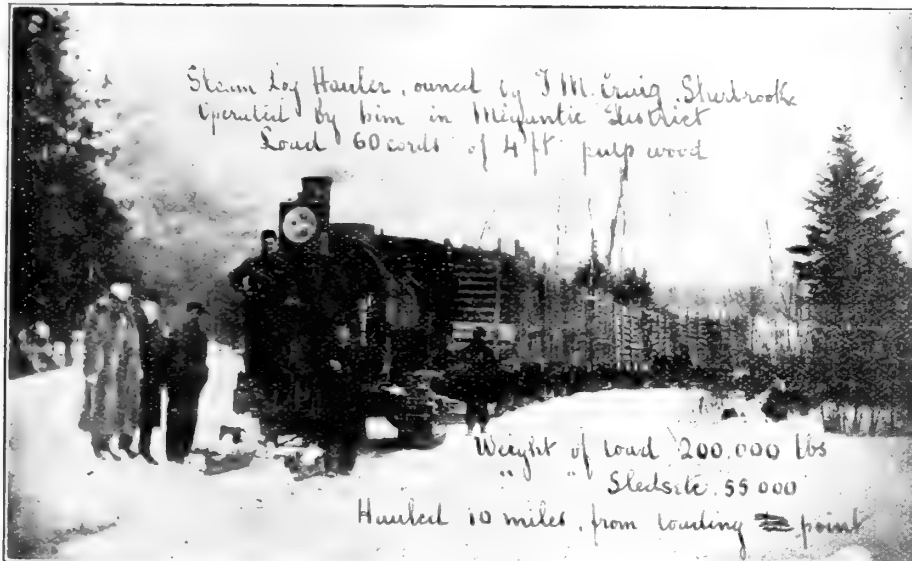 Steam Log Hauler, owned by F M. Craig, Sherbrooke
Operated by him in Megantic District
Load 60 cords of 4 ft pulp wood
Weight of load 200.000 lbs
" " Sleds etc. 55 000
Hauled 10 miles, from loading point